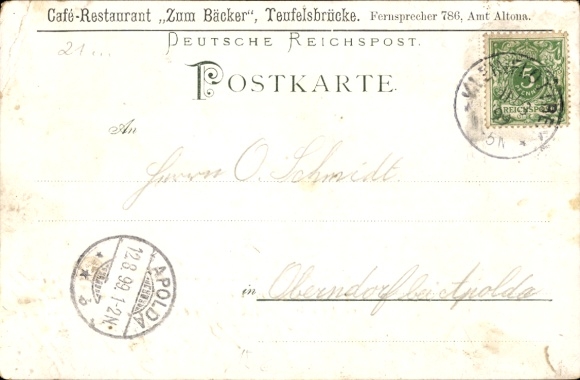 Café-Restaurant „Zum Bäcker", Teufelsbrücke. Fernsprecher 786, Amt Altona.
21...
DEUTSCHE REICHSPOST.
POSTKARTE.
5
REICHSPOST
An
Herrn O. Schmidt.
in Oberndorf bei Apolda
APOLDA
12.8.99. 1-2N.